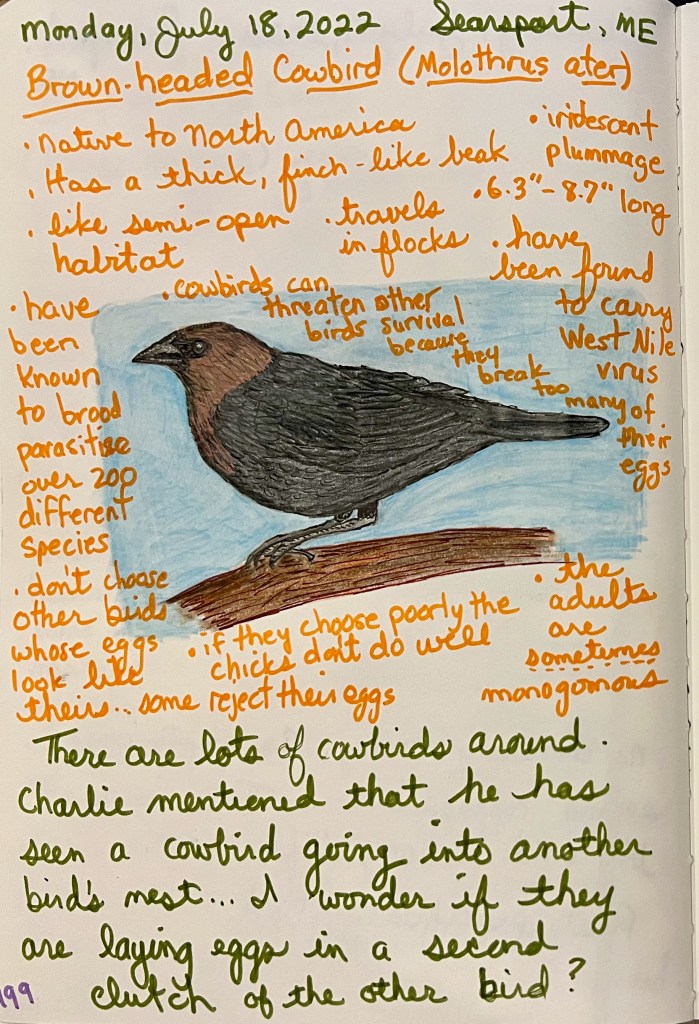 Monday, July 18, 2022 Searsport, ME
Brown-headed Cowbird (Molothrus ater)
• native to North America
• Has a thick, finch-like beak
• like semi-open
habitat
• travels
in flocks
• iridescent
plummage
• 6.3"-8.7" long
• have
been found
to carry
West Nile
virus
• cowbirds can
threaten other
birds survival
because
they
break
too
many of
their
eggs
• have
been
known
to brood
parasitise
over 200
different
species
• don't choose
other birds
whose eggs
look like
theirs... some reject their eggs
• if they choose poorly the
chicks don't do well
• the
adults
are
sometimes
monogomous
There are lots of cowbirds around.
Charlie mentioned that he has
seen a cowbird going into another
bird's nest... I wonder if they
are laying eggs in a second
clutch of the other bird?
199